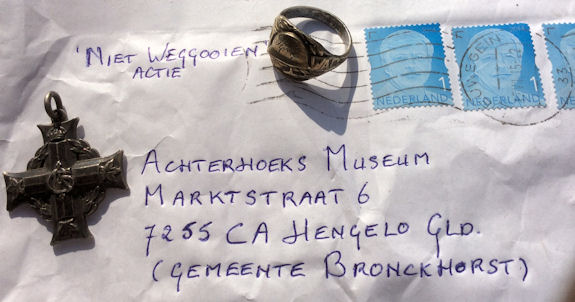 'NIET WEGGOOIEN
ACTIE'
1
NEDERLAND
1
NEDERLAND
ACHTERHOEKS MUSEUM
MARKTSTRAAT 6
7255 CA HENGELO GLD.
(GEMEENTE BRONCKHORST)